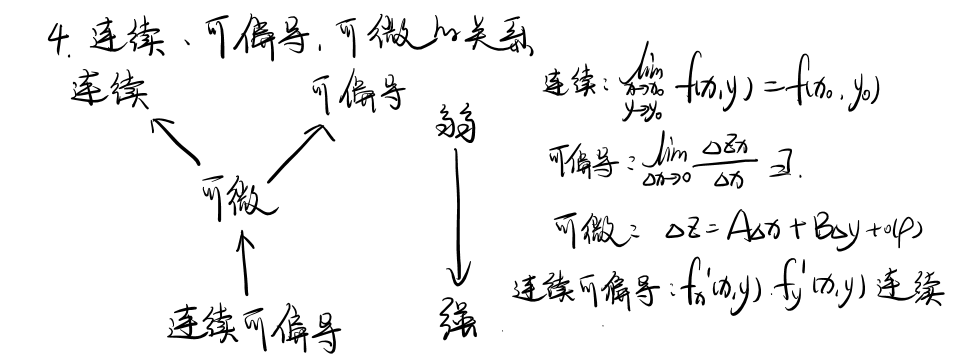 4. 连续、可偏导、可微的关系
连续 可偏导
可微
连续可偏导
弱
强
连续: lim x→x₀ y→y₀ f(x,y)=f(x₀,y₀)
可偏导: lim Δx→0 Δzx/Δx ∃.
可微: Δz=AΔx+BΔy+o(ρ)
连续可偏导: fx'(x,y). fy'(x,y) 连续